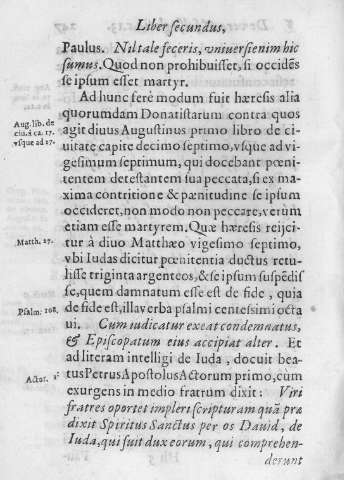 Liber secundus,
Paulus. Nil tale feceris, vniuersi enim hic
sumus. Quod non prohibuisset, si occidẽs
se ipsum esset martyr.
Ad hunc ferè modum fuit hæresis alia
quorumdam Donatistarum contra quos
Aug. lib. de
agit diuus Augustinus primo libro de ci-
ciu. i ca. 17.
uitate capite decimo septimo, vsque ad vi-
vsque ad 27.
gesimum septimum, qui docebant pœni-
tentem detestantem sua peccata, si ex ma-
xima contritione & pænitudine se ipsum
occideret, non modo non peccare, verùm
etiam esse martyrem. Quæ hæresis reijci-
Matth. 27.
tur à diuo Matthæo vigesimo septimo,
vbi Iudas dicitur pœnitentia ductus retu-
lisse triginta argenteos, & se ipsum suspẽdis
se, quem damnatum esse est de fide, quia
Psalm. 108.
de fide est, illa verba psalmi centesimi octa
ui. Cum iudicatur exeat condemnatus,
& Episcopatum eius accipiat alter. Et
ad literam intelligi de Iuda, docuit bea-
Actor. 1.
tus Petrus Apostolus Actorum primo, cùm
exurgens in medio fratrum dixit: Viri
fratres oportet impleri scripturam quã præ
dixit Spiritus Sanctus per os Dauid, de
Iuda, qui fuit dux eorum, qui comprehen-
derunt